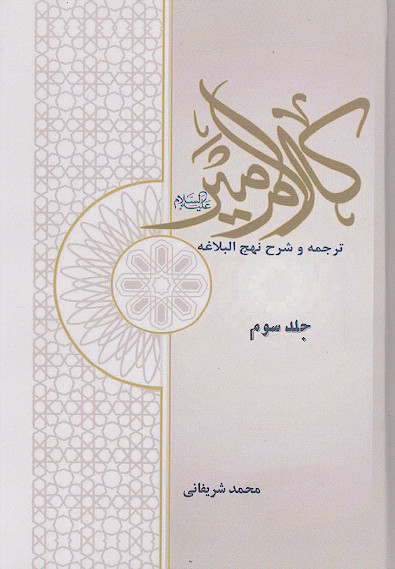 کلام امیر
علیه السلام
ترجمه و شرح نهج البلاغه
جلد سوم
محمد شریفانی